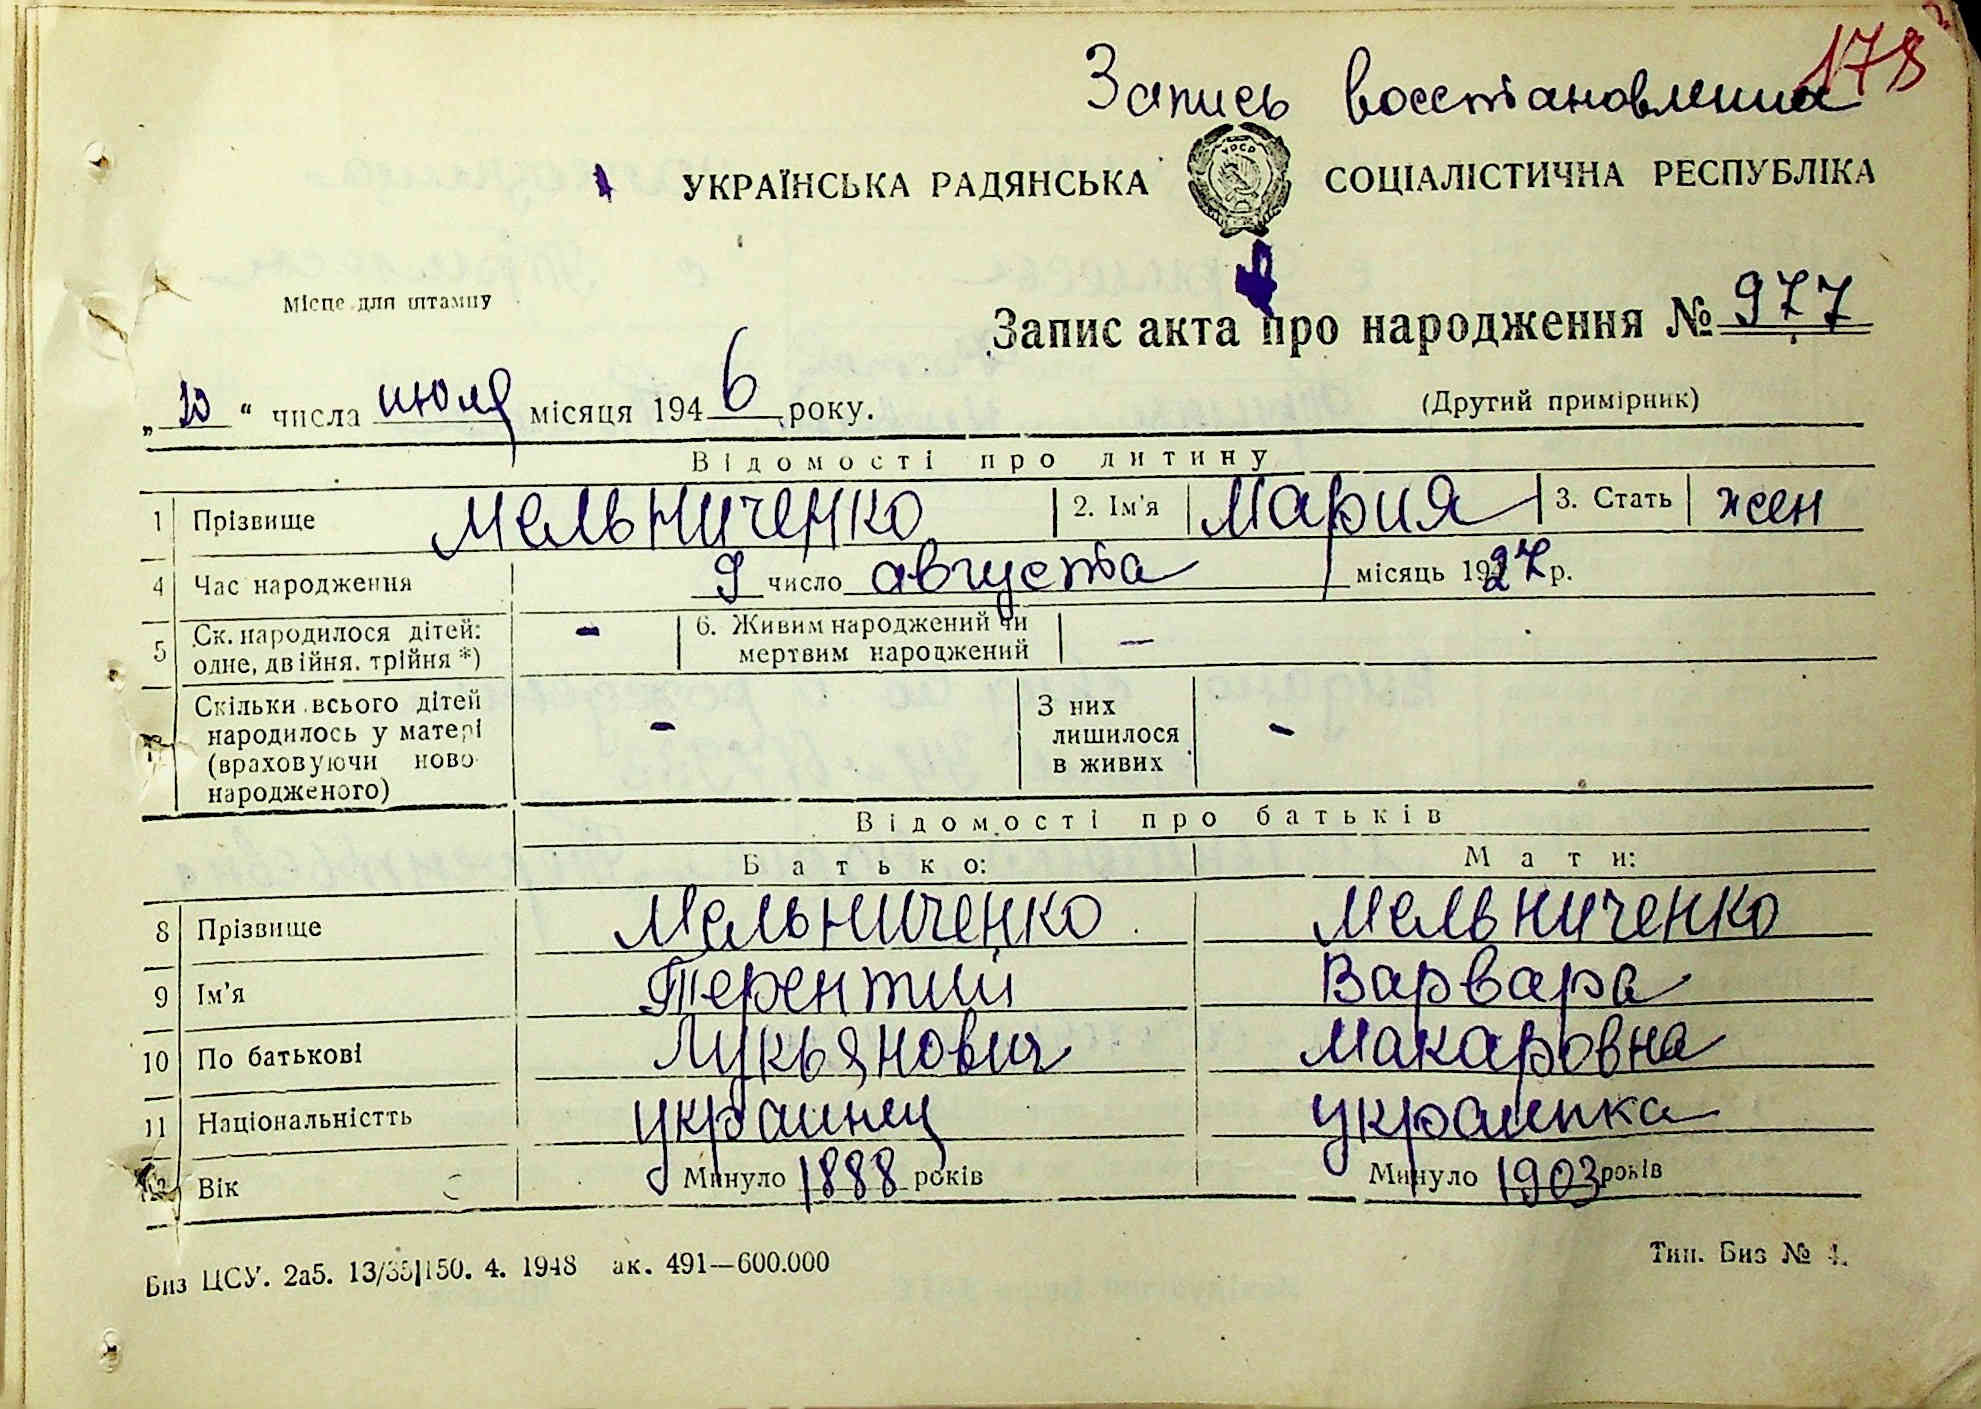 178
Запись восстановлена
УКРАЇНСЬКА РАДЯНСЬКА СОЦІАЛІСТИЧНА РЕСПУБЛІКА
УРСР
Місце для штампу
Запис акта про народження № 977
„10“ числа июля місяця 1946 року.
(Другий примірник)
Відомості про дитину
1 Прізвище Мельниченко 2. Ім'я Мария 3. Стать жен
4 Час народження 9 число августа місяць 1927 р.
5 Ск. народилося дітей: одне, двійня, трійня *) – 6. Живим народжений чи мертвим народжений –
Скільки всього дітей народилось у матері (враховуючи ново народженого) – З них лишилося в живих –
Відомості про батьків
Батько: Мати:
8 Прізвище Мельниченко Мельниченко
9 Ім'я Терентий Варвара
10 По батькові Лукьянович Макаровна
11 Національністть украинец украинка
12 Вік Минуло 1888 років Минуло 1903 років
Биз ЦСУ. 2а5. 13/35|150. 4. 1948 ак. 491—600.000
Тип. Биз №